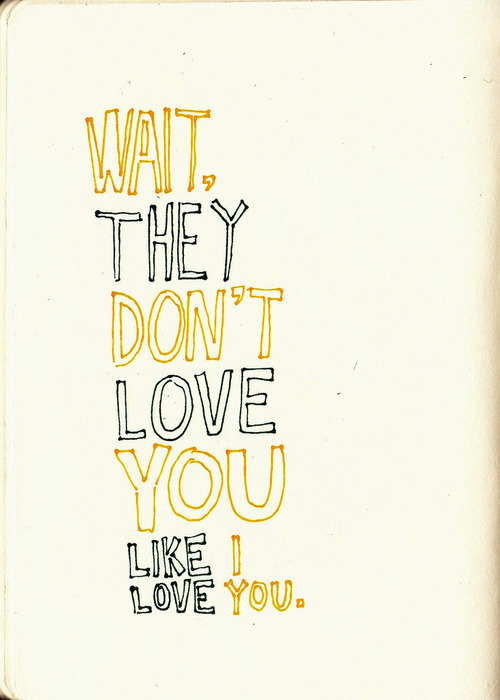 WAIT,
THEY
DON'T
LOVE
YOU
LIKE I
LOVE YOU.